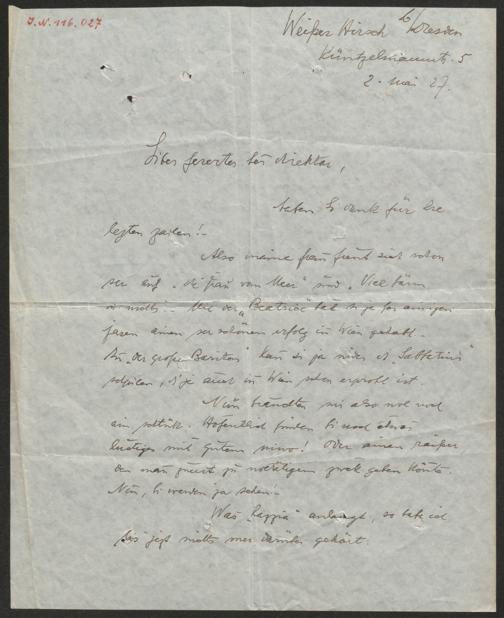 I.N. 116.027
Weißer Hirsch b/Dresden
Küntzelmannstr. 5
2. Mai 27.
Liber fererter her direktor,
haben Si dank für ire
lezten zeilen! -
Also meine frau freut sich schon
ser auf "die Frau vom Meer" und "Viel lärm
um nichts". - Mit der "Beatrice" hat si ja for einigen
jaren einen ser schönen erfolg in Wien gehabt. -
Bei "der große Bariton" kan si ja wider di "Sabbatini"
spilen, di ja auch in Wien schon erprobt ist.
Nun brauchten wir also noch
ein stük. Hofentlich finden Si noch etwas
lustiges mit gutem niwo! Oder einen reißer
den man zu
geben könte.
Nun, Si werden ja sehen. -
Was anlangt, so hab ich
bis jezt nichts mer darüber gehört.